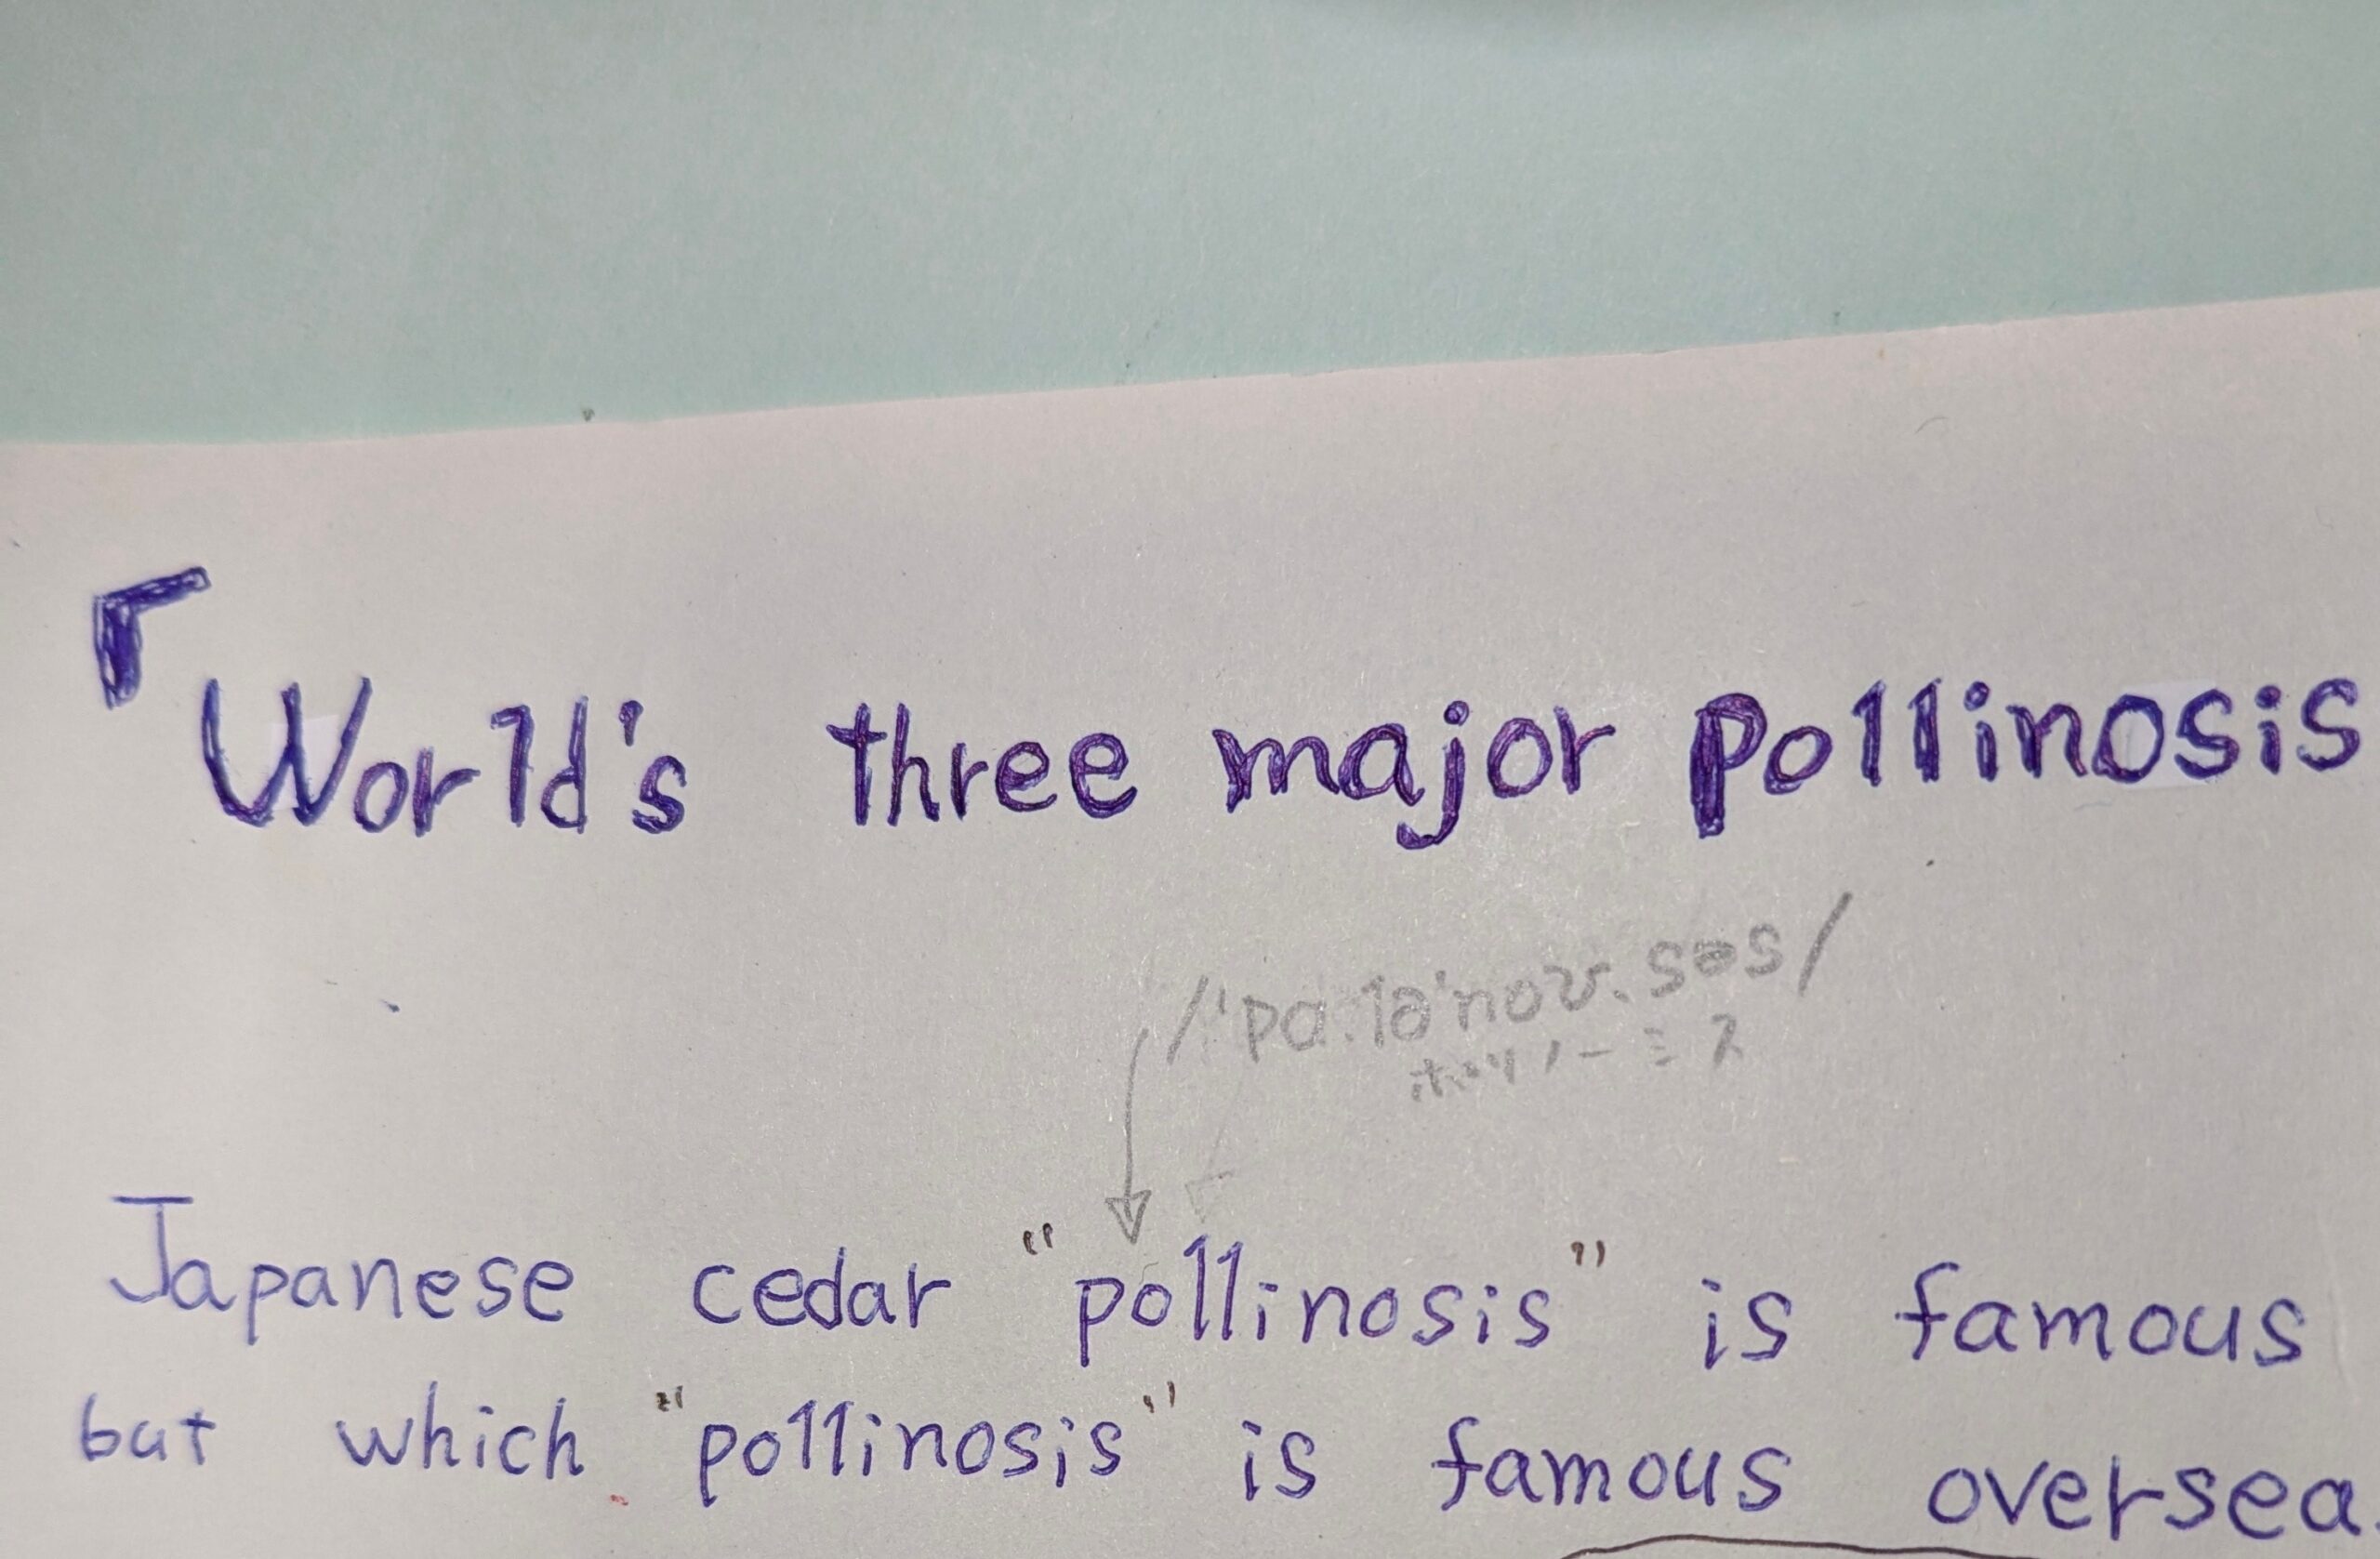 「World's three major pollinosis
/'pɑ.lə'noʊ.səs/
Japanese cedar "pollinosis" is famous
but which "pollinosis" is famous oversea